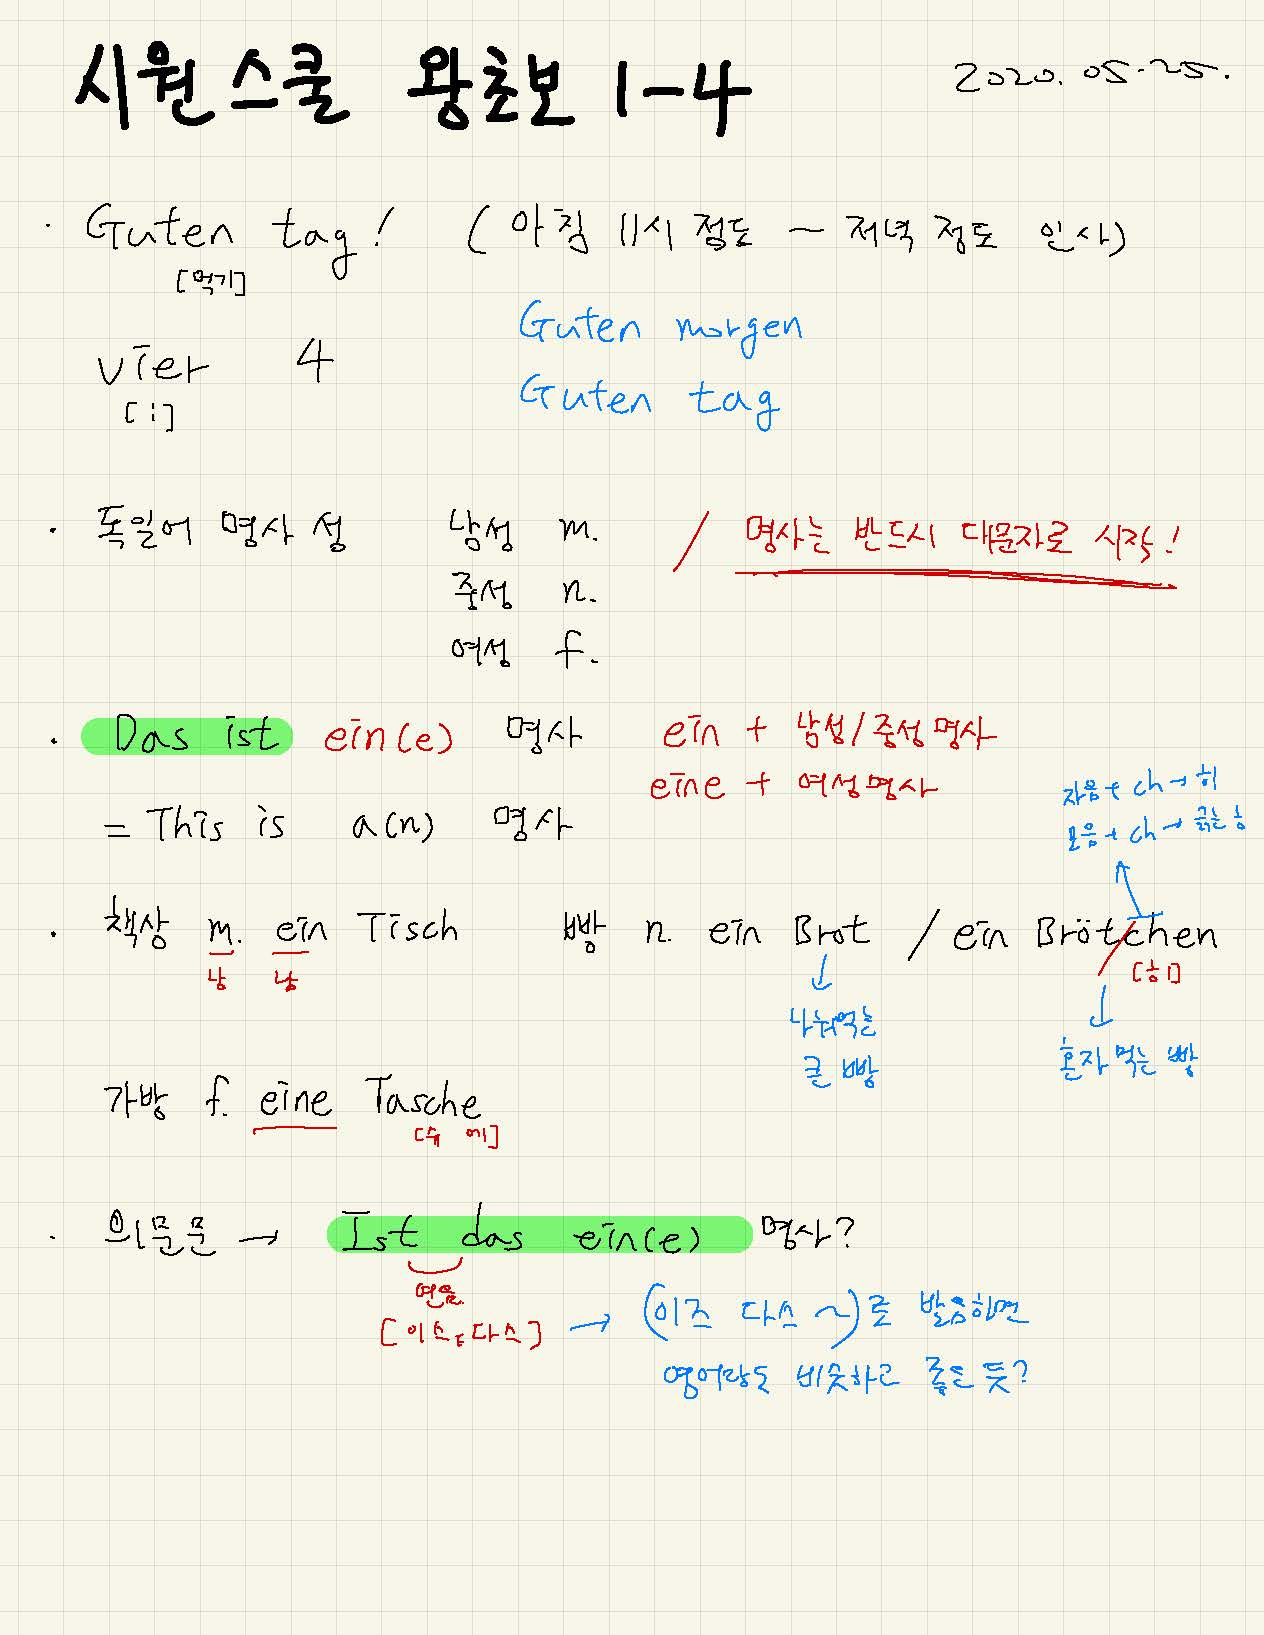 시원스쿨 왕초보 1-4
2020.05.25.
· Guten tag! (아침 11시 정도 ~ 저녁 정도 인사)
[먹기]
Guten morgen
vier 4
[ㅣ]
Guten tag
· 독일어 명사 성 남성 m. / 명사는 반드시 대문자로 시작!
중성 n.
여성 f.
· Das ist ein(e) 명사 ein + 남성/중성명사
eine + 여성명사
= This is a(n) 명사
자음 + ch → 히
모음 + ch → 긁는 흐
· 책상 m. ein Tisch 빵 n. ein Brot / ein Brötchen
남 남
[히]
나눠먹는
큰 빵
혼자 먹는 빵
가방 f. eine Tasche
[슈 에]
· 의문문 → Ist das ein(e) 명사?
연음
[이스ㅌ다스] → (이즈 다스 ~)로 발음하면
영어랑도 비슷하고 좋은 듯?